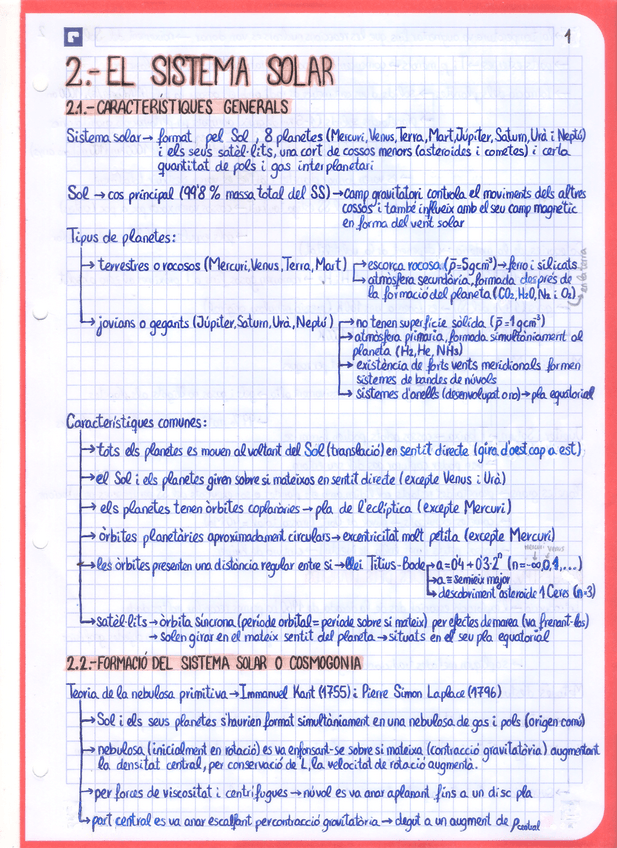 1
2.- EL SISTEMA SOLAR
2.1.- CARACTERÍSTIQUES GENERALS
Sistema solar → format pel Sol, 8 planetes (Mercuri, Venus, Terra, Mart, Júpiter, Saturn, Urà i Neptú)
i els seus satèl·lits, una cort de cossos menors (asteroides i cometes) i certa
quantitat de pols i gas interplanetari
Sol → cos principal (99'8 % massa total del SS) → camp gravitatori controla el moviments dels altres
cossos i també influeix amb el seu camp magnètic
en forma del vent solar
Tipus de planetes:
→ terrestres o rocosos (Mercuri, Venus, Terra, Mart) → escorça rocosa (ρ̄=5gcm³) → ferro i silicats
→ atmosfera secundària, formada després de
la formació del planeta (CO₂, H₂O, N₂ i O₂)
→ en la terra
→ jovians o gegants (Júpiter, Saturn, Urà, Neptú) → no tenen superfície sòlida (ρ̄=1gcm³)
→ atmòsfera primària, formada simultàniament al
planeta (H₂, He, NH₃)
→ existència de forts vents meridionals formen
sistemes de bandes de núvols
→ sistemes d'anells (desenvolupat o no) → pla equatorial
Característiques comunes:
→ tots els planetes es mouen al voltant del Sol (translació) en sentit directe (gira d'oest cap a est)
→ el Sol i els planetes giren sobre si mateixos en sentit directe (excepte Venus i Urà)
→ els planetes tenen òrbites coplanàries → pla de l'eclíptica (excepte Mercuri)
→ òrbites planetàries aproximadament circulars → excentricitat molt petita (excepte Mercuri)
MERCURI VENUS
→ les òrbites presenten una distància regular entre si → llei Titius-Bode → a = 0'4 + 0'3·2ⁿ (n=-∞,0,1,...)
→ a ≡ semieix major
→ descobriment asteroide 1 Ceres (n=3)
→ satèl·lits → òrbita síncrona (període orbital = període sobre si mateix) per efectes de marea (va frenant-los)
→ solen girar en el mateix sentit del planeta → situats en el seu pla equatorial
2.2.- FORMACIÓ DEL SISTEMA SOLAR O COSMOGONIA
Teoria de la nebulosa primitiva → Immanuel Kant (1755) i Pierre Simon Laplace (1796)
→ Sol i els seus planetes s'haurien format simultàniament en una nebulosa de gas i pols (origen comú)
→ nebulosa (inicialment en rotació) es va enfonsant-se sobre si mateixa (contracció gravitatòria) augmentant
la densitat central, per conservació de L, la velocitat de rotació augmentà.
→ per forces de viscositat i centrífugues → núvol es va anar aplanant fins a un disc pla
→ part central es va anar escalfant per contracció gravitatòria → degut a un augment de ρcentral